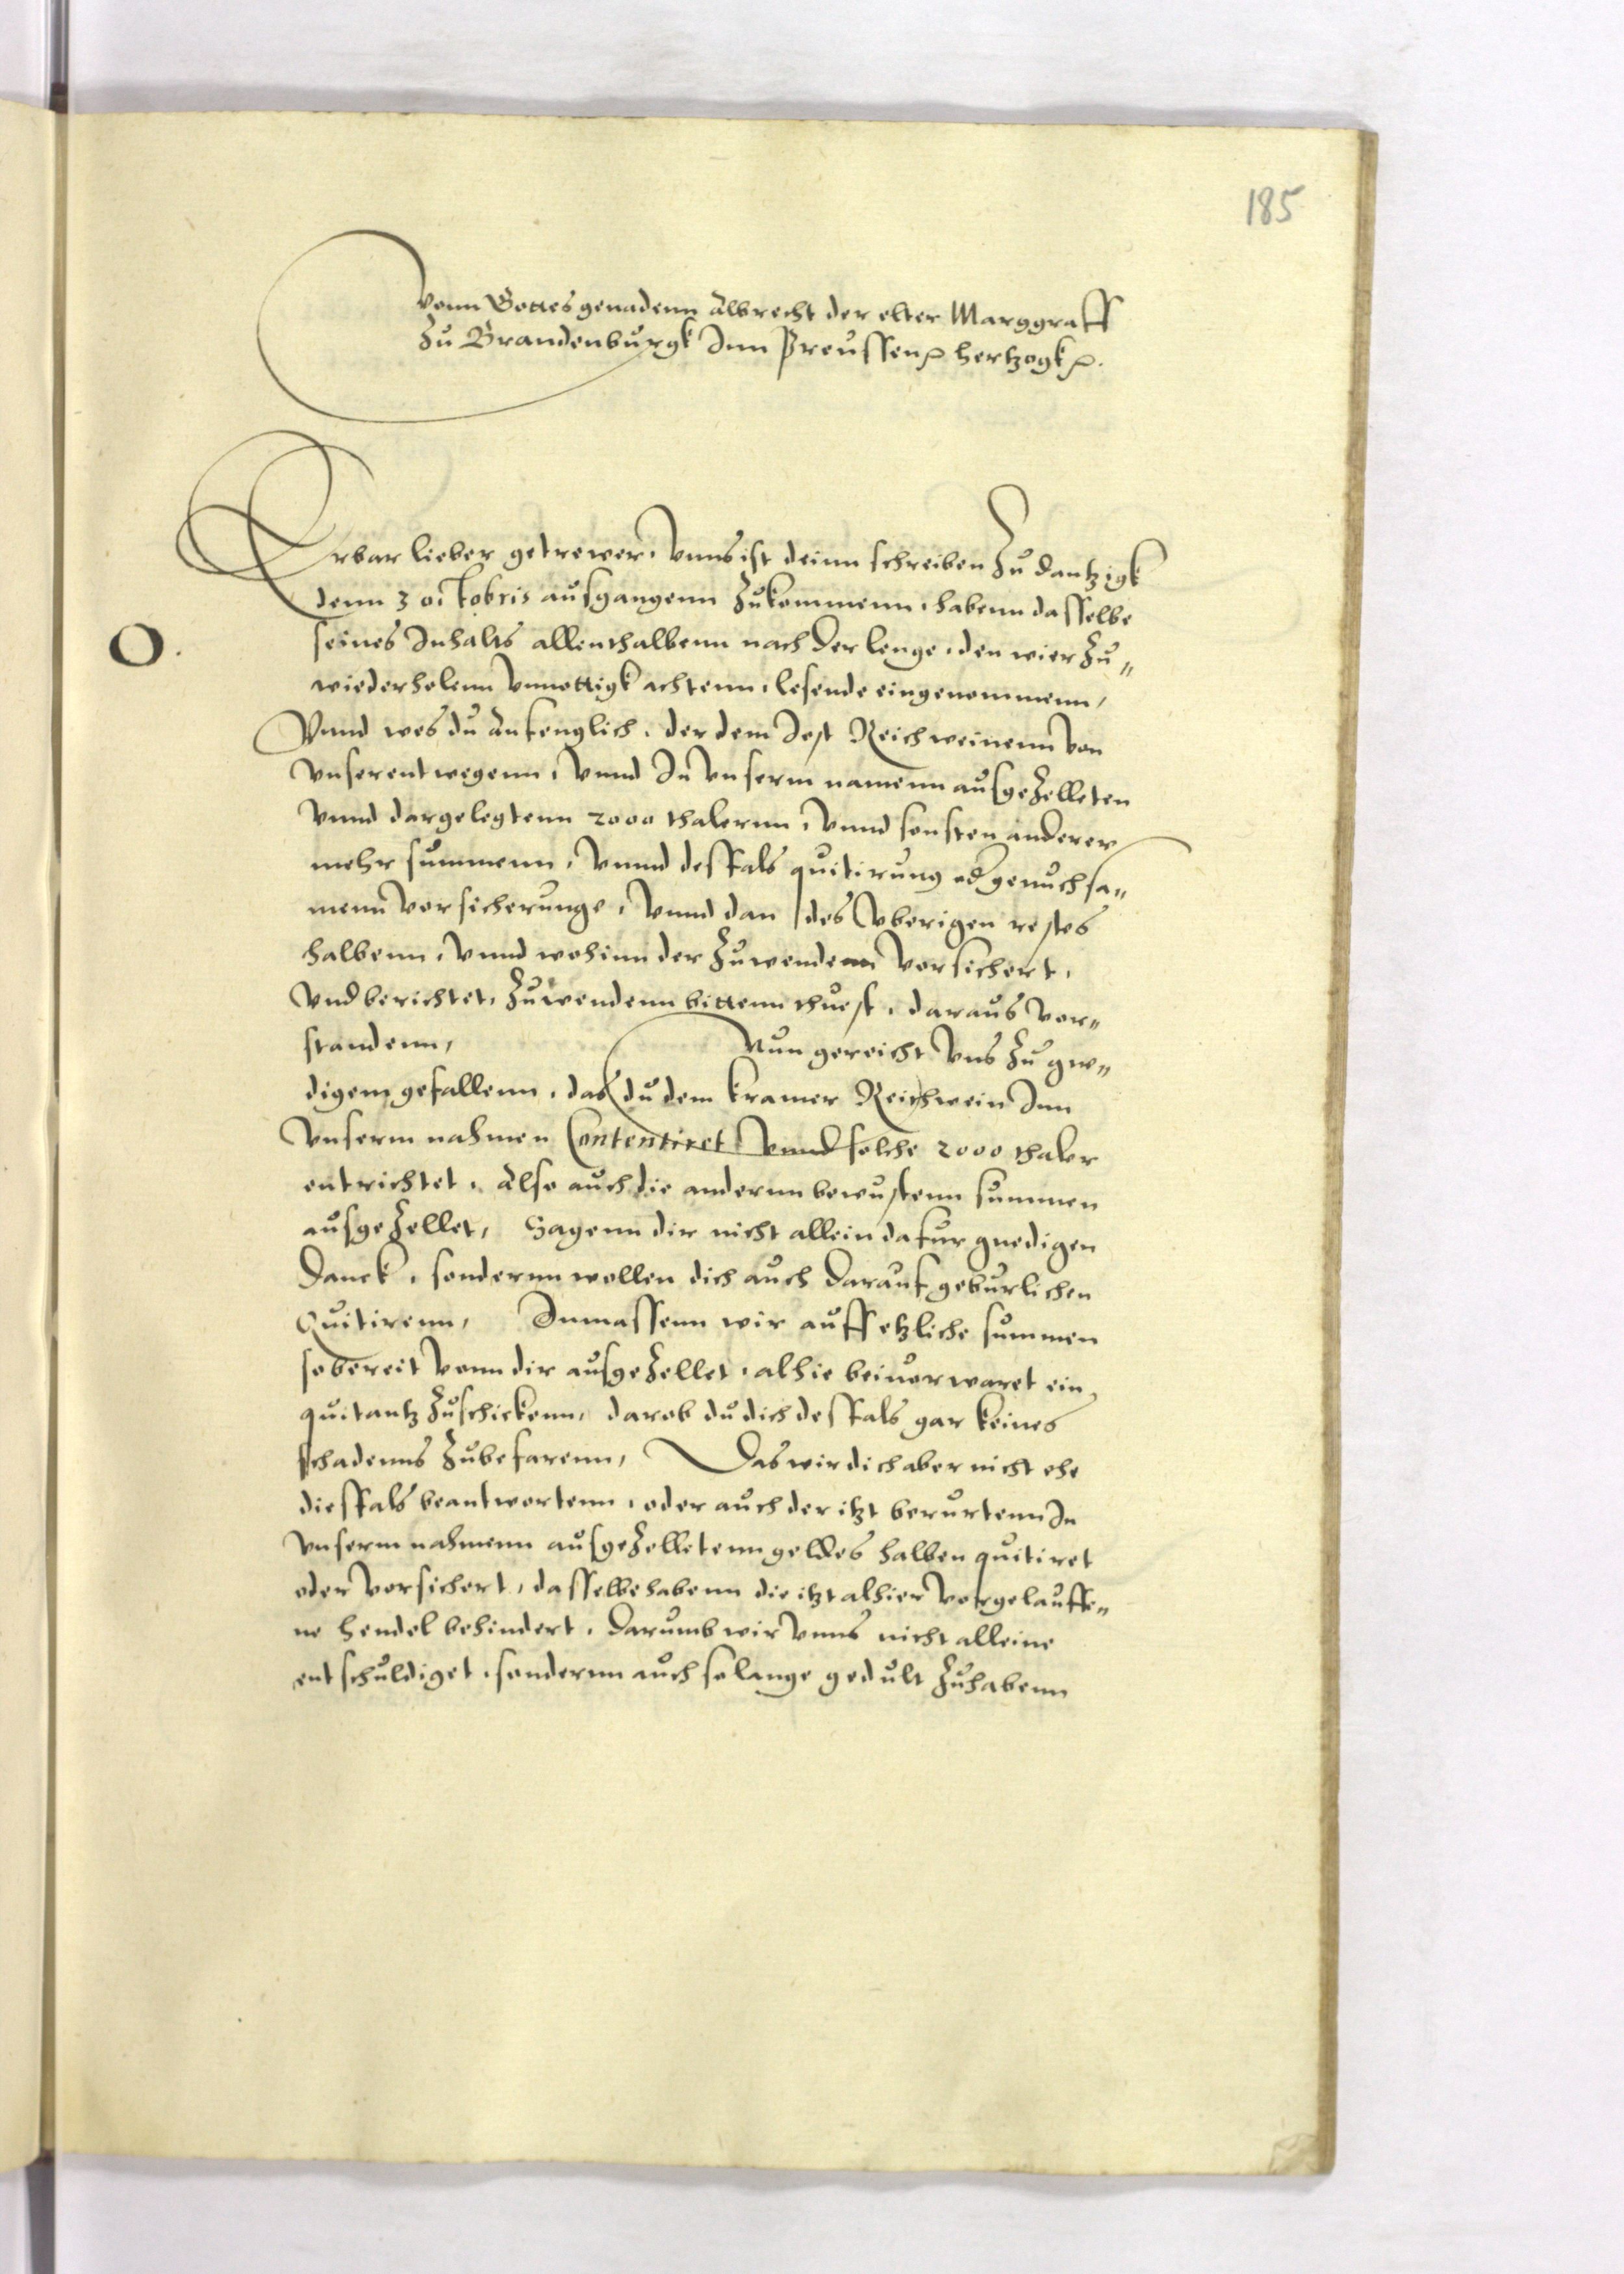 185
Vonn Gottes genadenn Albrecht der elter Marggraff
Zu Brandenburgk Inn Preussen p hertzogk p.
Erbar lieber getrewer, Vnns ist deinn schreiben Zu dantzigk
denn 3 octobris ausgangenn Zukommenn, habenn dasselbe
O.
seines Inhalts allenthalbenn nach der lenge, den wier Zu„
wiederholenn Vnnottigk achtenn, lesende eingenommenn,
Vnnd wes du Anfenglich, der dem Jost Reichweinenn von
Vnserentwegenn, Vnnd In Vnserm namenn ausgeZelleten
Vnnd dargelegtenn 2000 thalernn, Vnnd sonsten anderer
mehr summenn, Vnnd desfals quitirung od genuchsa„
menn Vorsicherunge, Vnnd dan des Vberigen restes
halbenn, Vnnd wohinn der Zuwendenn Vorsichert,
Vnd berichtet, Zuwendenn bittenn thuest, daraus vor„
standenn, Nun gereicht Vns Zu gne„
digem gefallenn, das du dem Kramer Reichwein Inn
Vnserm nahmen Contentiret Vnnd solche 2000 thaler
entrichtet, Also auch die andernn bewustenn summen
ausgeZellet, Sagenn dir nicht allein dafur gnedigen
Danck, sondernn wollen dich auch darauf geburlichen
Quitirenn, Inmassenn wir auff etzliche summen
so bereit vonn dir ausgeZellet, alhie beiuorwaret ein
quitantz Zuschickenn, darob du dich desfals gar keines
schadenns Zubefarenn, Das wir dich aber nicht ehe
diesfals beantwortenn, oder auch der itzt berurtenn In
Vnserm nahmenn ausgeZelletenn geldes halben quitiret
oder Vorsichert, dasselbe habenn die itzt alhier Vorgelauffe„
ne hendel behindert, Darumb wir Vnns nicht alleine
entschuldiget, sondernn auch so lange gedult Zuhabenn